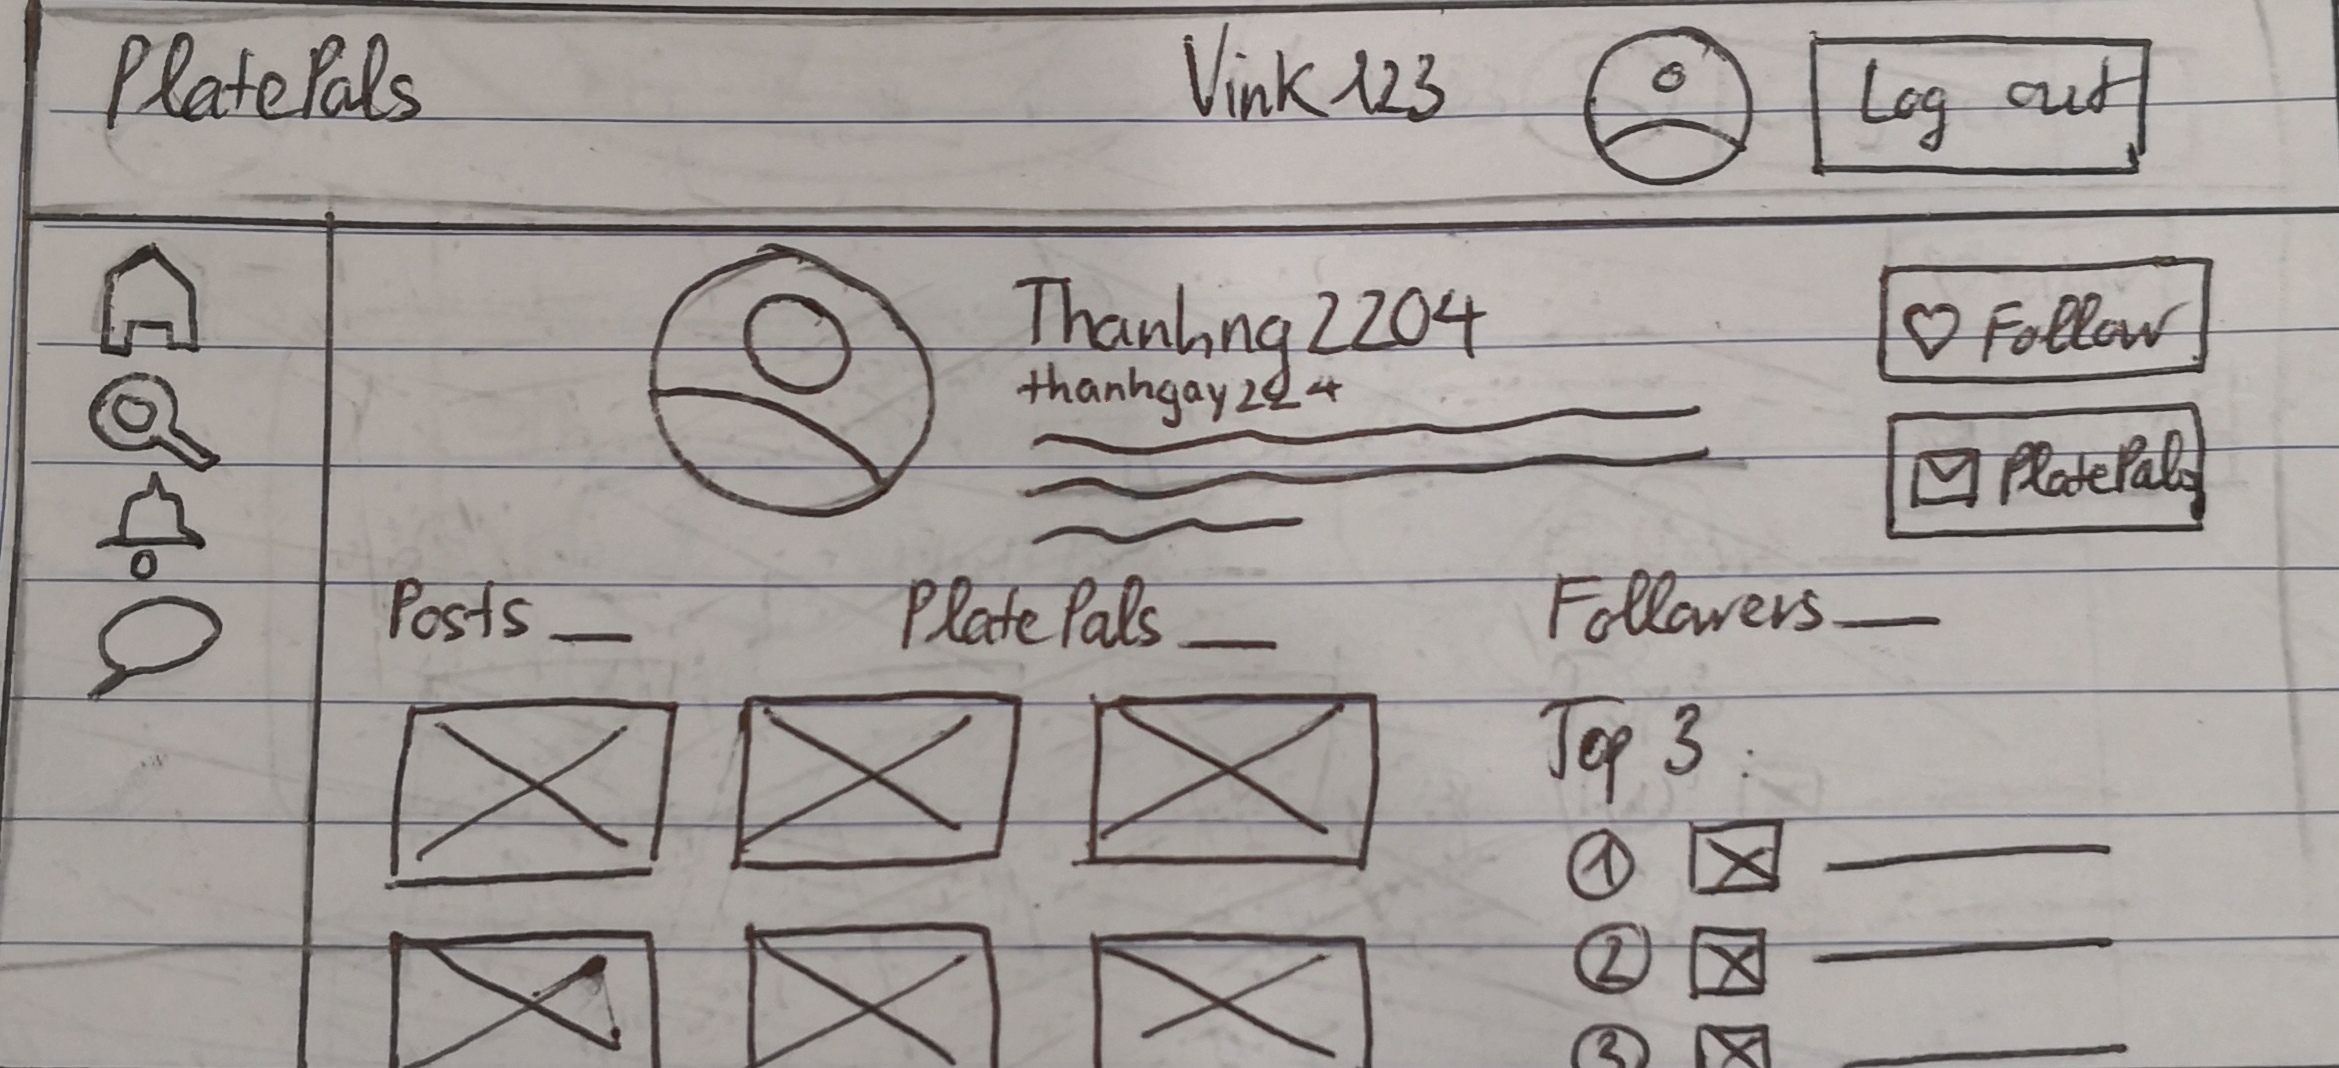 PlatePals
Vink123
Log out
Thanhng2204
thanhgay224
Follow
PlatePals
Posts
PlatePals
Followers
Top 3 :
1
2
3